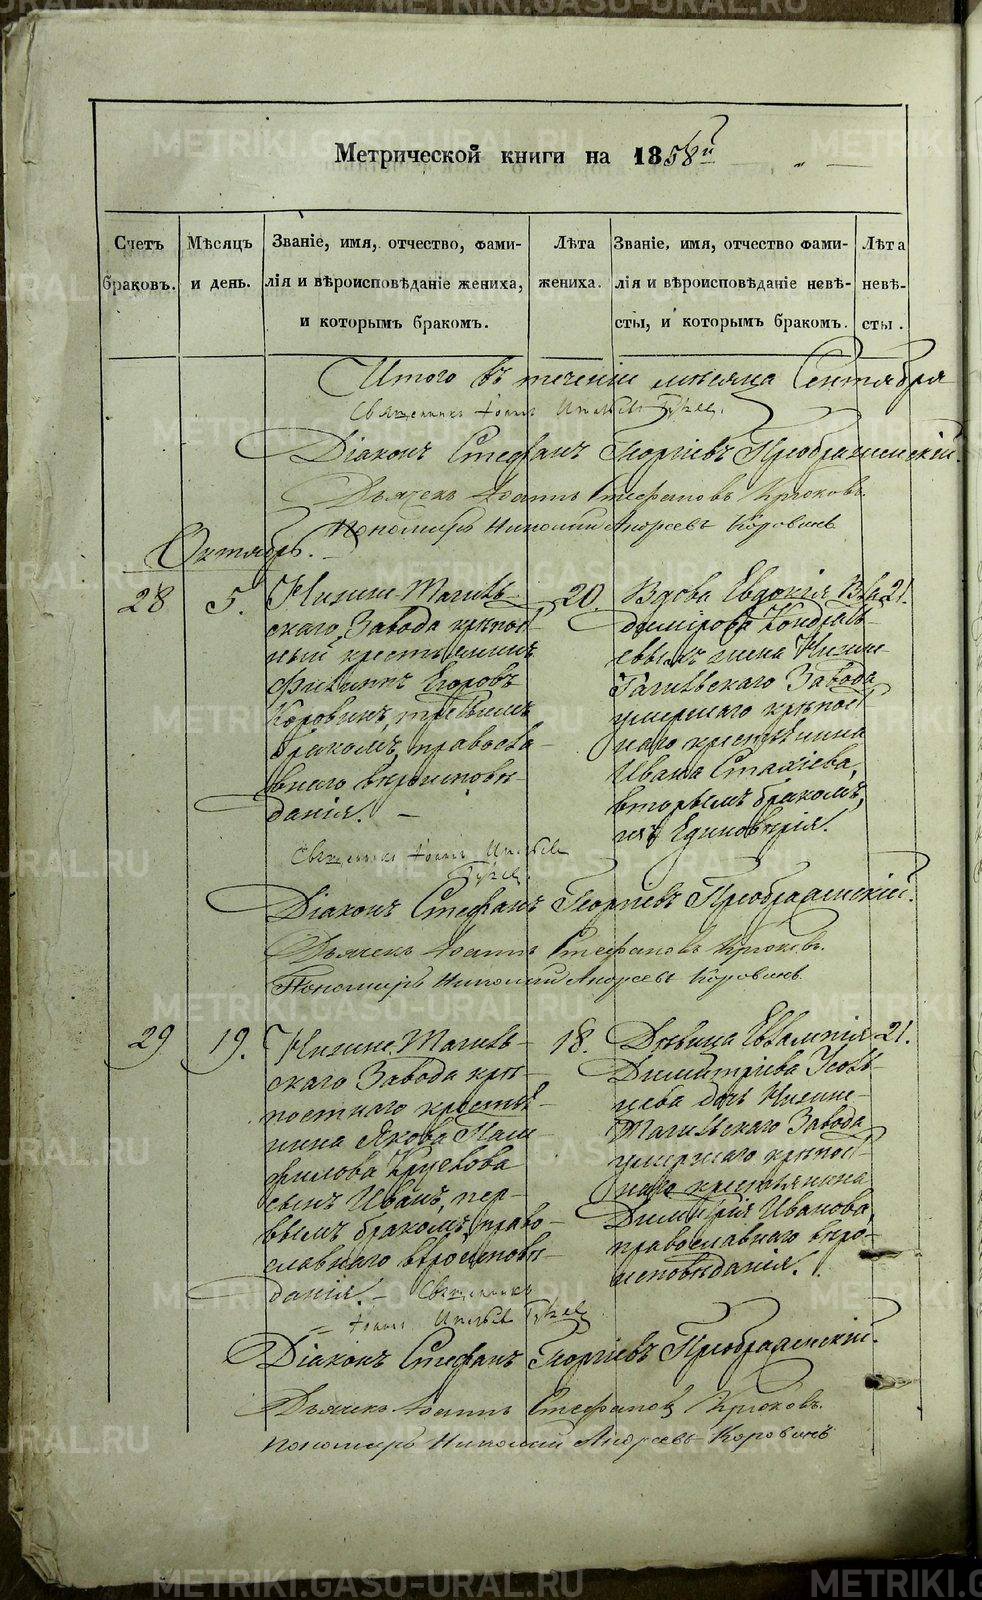 Метрической книги на 1858й
Счетъ браковъ.
Мѣсяцъ и день.
Званіе, имя, отчество, фами-
лія и вѣроисповѣданіе жениха,
и которымъ бракомъ.
Лѣта жениха.
Званіе, имя, отчество фами-
лія и вѣроисповѣданіе невѣ-
сты, и которымъ бракомъ.
Лѣта невѣ-
сты.
Итого въ теченіе мѣсяца Сентября
Священникъ Іоаннъ
Діаконъ Стефанъ Георгіевъ Преображенскій.
Дьячекъ Іоаннъ Стефановъ Крюковъ.
Пономарь Николай Андреевъ Коровинъ
Октябрь.
28
5.
Нижне-Тагиль-
скаго Завода крѣпост-
ный крестьянинъ
Филиппъ Егоровъ
Коровинъ, третьимъ
бракомъ, правосла-
внаго вѣроисповѣ-
данія. —
20.
Вдова Евдокія Вла-
димірова Кондрать-
евыхъ жена Нижне-
Тагильскаго Завода
умершаго крѣпост-
наго крестьянина
Ивана Стахіева,
вторымъ бракомъ,
изъ Единовѣрія.
21.
Священникъ Іоаннъ
Діаконъ Стефанъ Георгіевъ Преображенскій.
Дьячекъ Іоаннъ Стефановъ Крюковъ.
Пономарь Николай Андреевъ Коровинъ.
29
19.
Нижне-Тагиль-
скаго Завода крѣ-
постнаго крестья-
нина Якова Пам-
филова
сынъ Иванъ, пер-
вымъ бракомъ, право-
славнаго вѣроисповѣ-
данія. —
18.
Дѣвица Евлампія
Димитріева
дочь Нижне-
Тагильскаго Завода
умершаго крѣпост-
наго крестьянина
Димитрія Иванова,
православнаго вѣро-
исповѣданія.
21.
Священникъ
Іоаннъ
Діаконъ Стефанъ Георгіевъ Преображенскій.
Дьячекъ Іоаннъ Стефановъ Крюковъ.
Пономарь Николай Андреевъ Коровинъ
METRIKI.GASO-URAL.RU